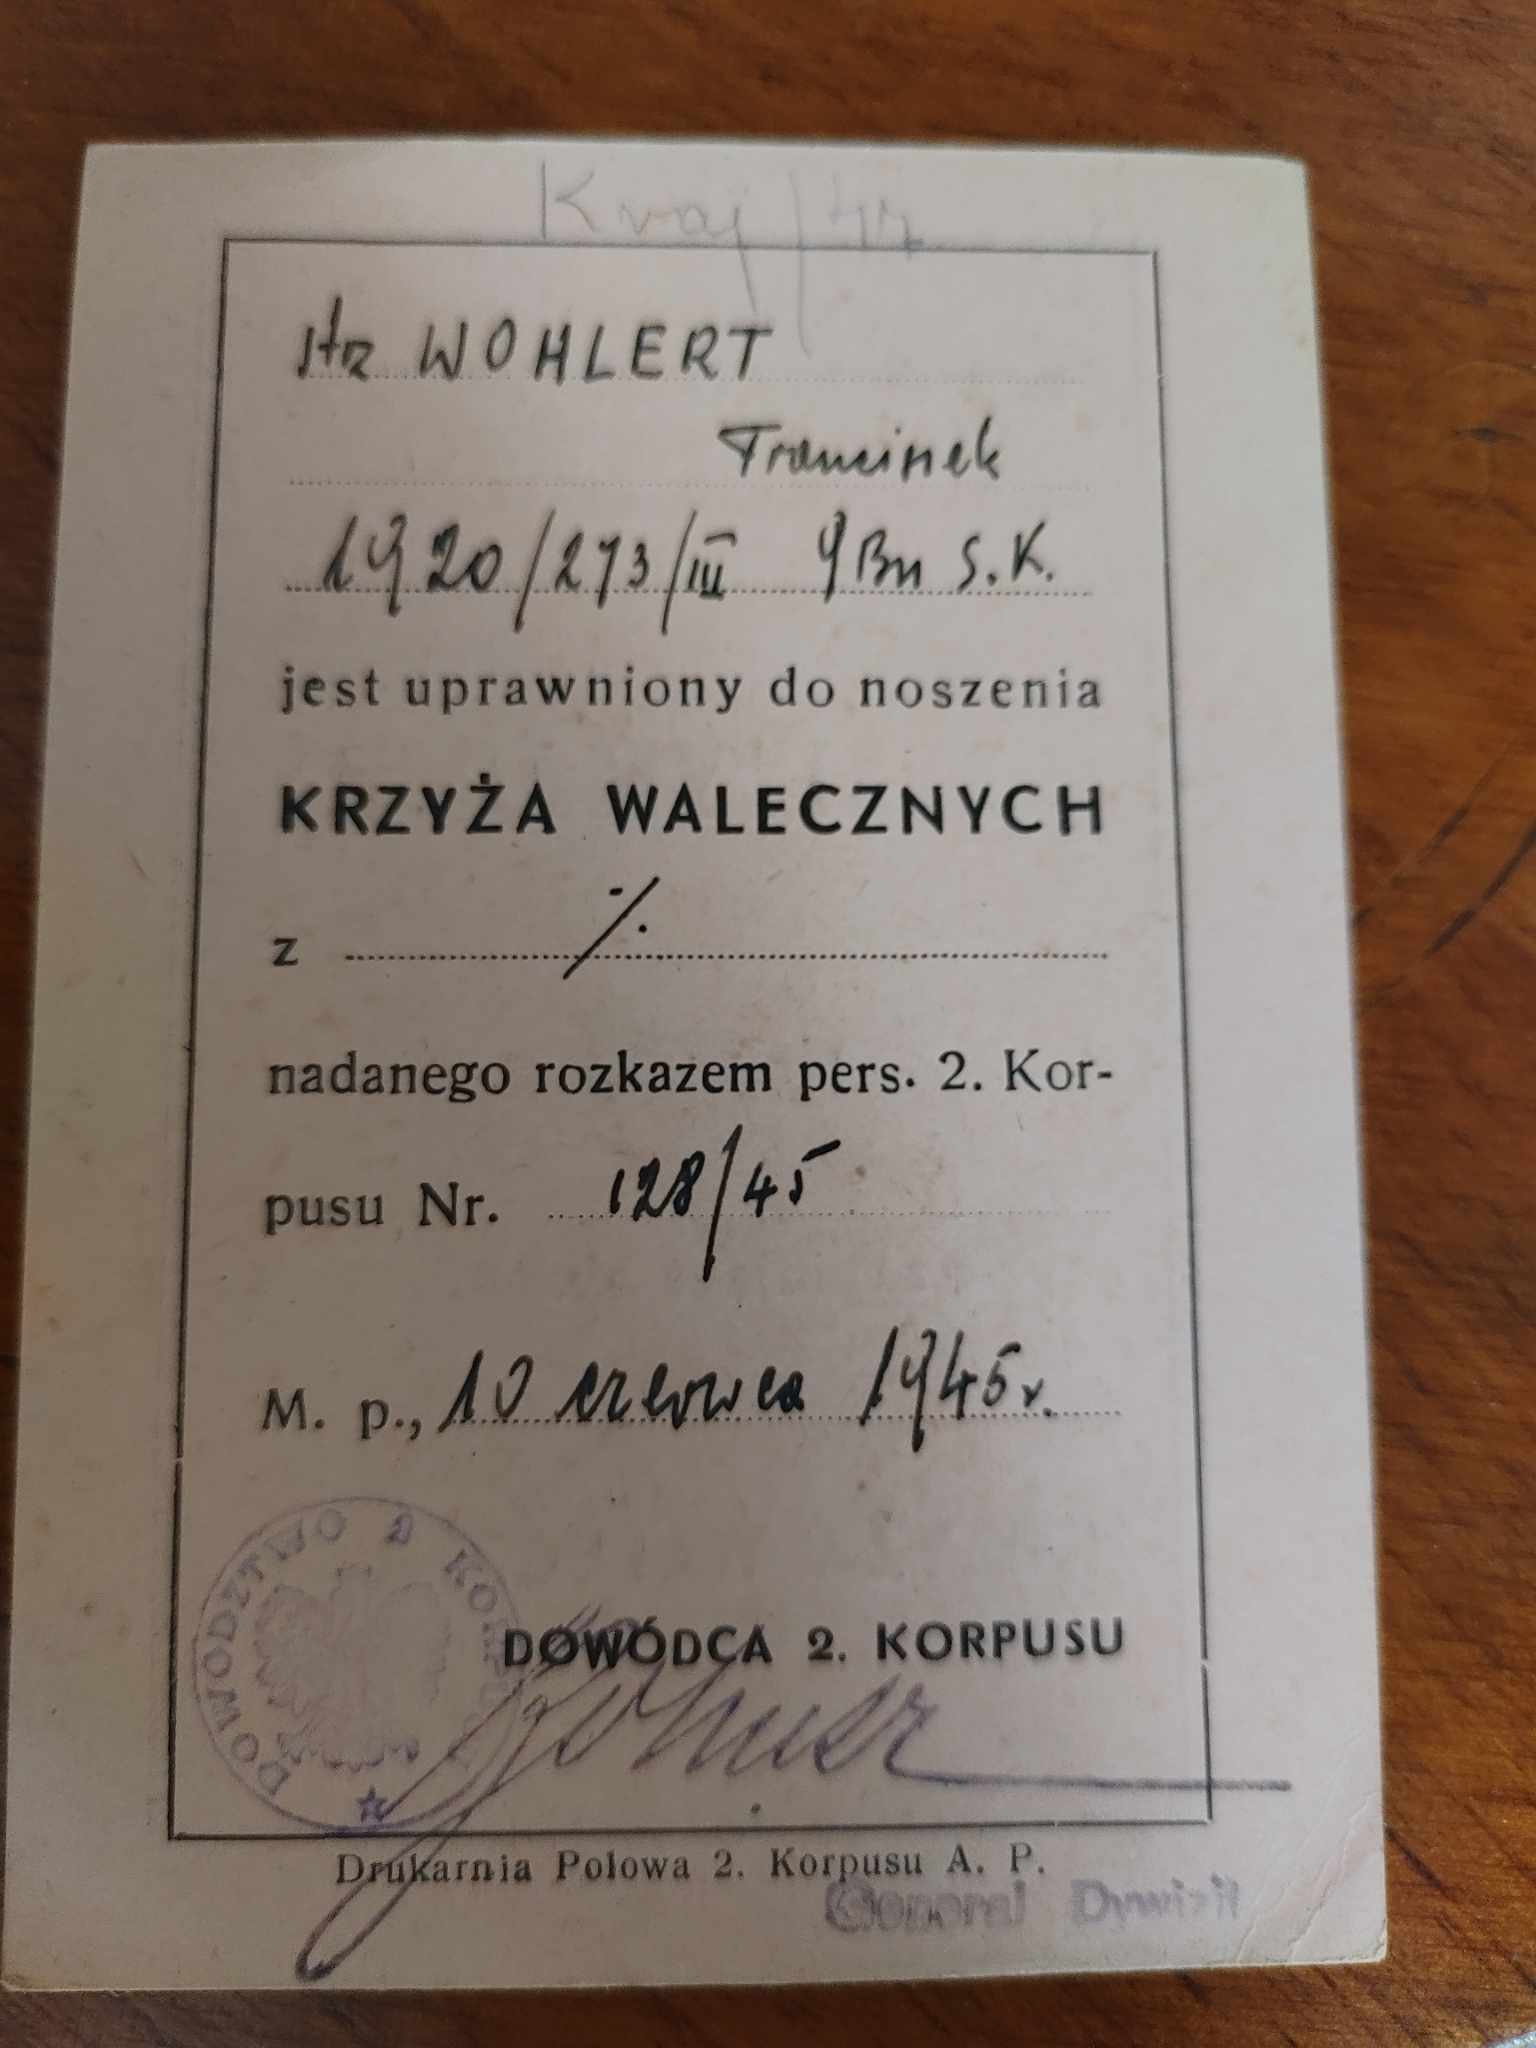 Kraj/44
strz WOHLERT
Franciszek
1920/273/III 9 Bn S.K.
jest uprawniony do noszenia
KRZYŻA WALECZNYCH
z ./.
nadanego rozkazem pers. 2. Kor-
pusu Nr. 128/45
M. p., 10 czerwca 1945 r.
DOWÓDZTWO 2 KORPUSU
DOWÓDCA 2. KORPUSU
Drukarnia Polowa 2. Korpusu A. P.
Generał Dywizji